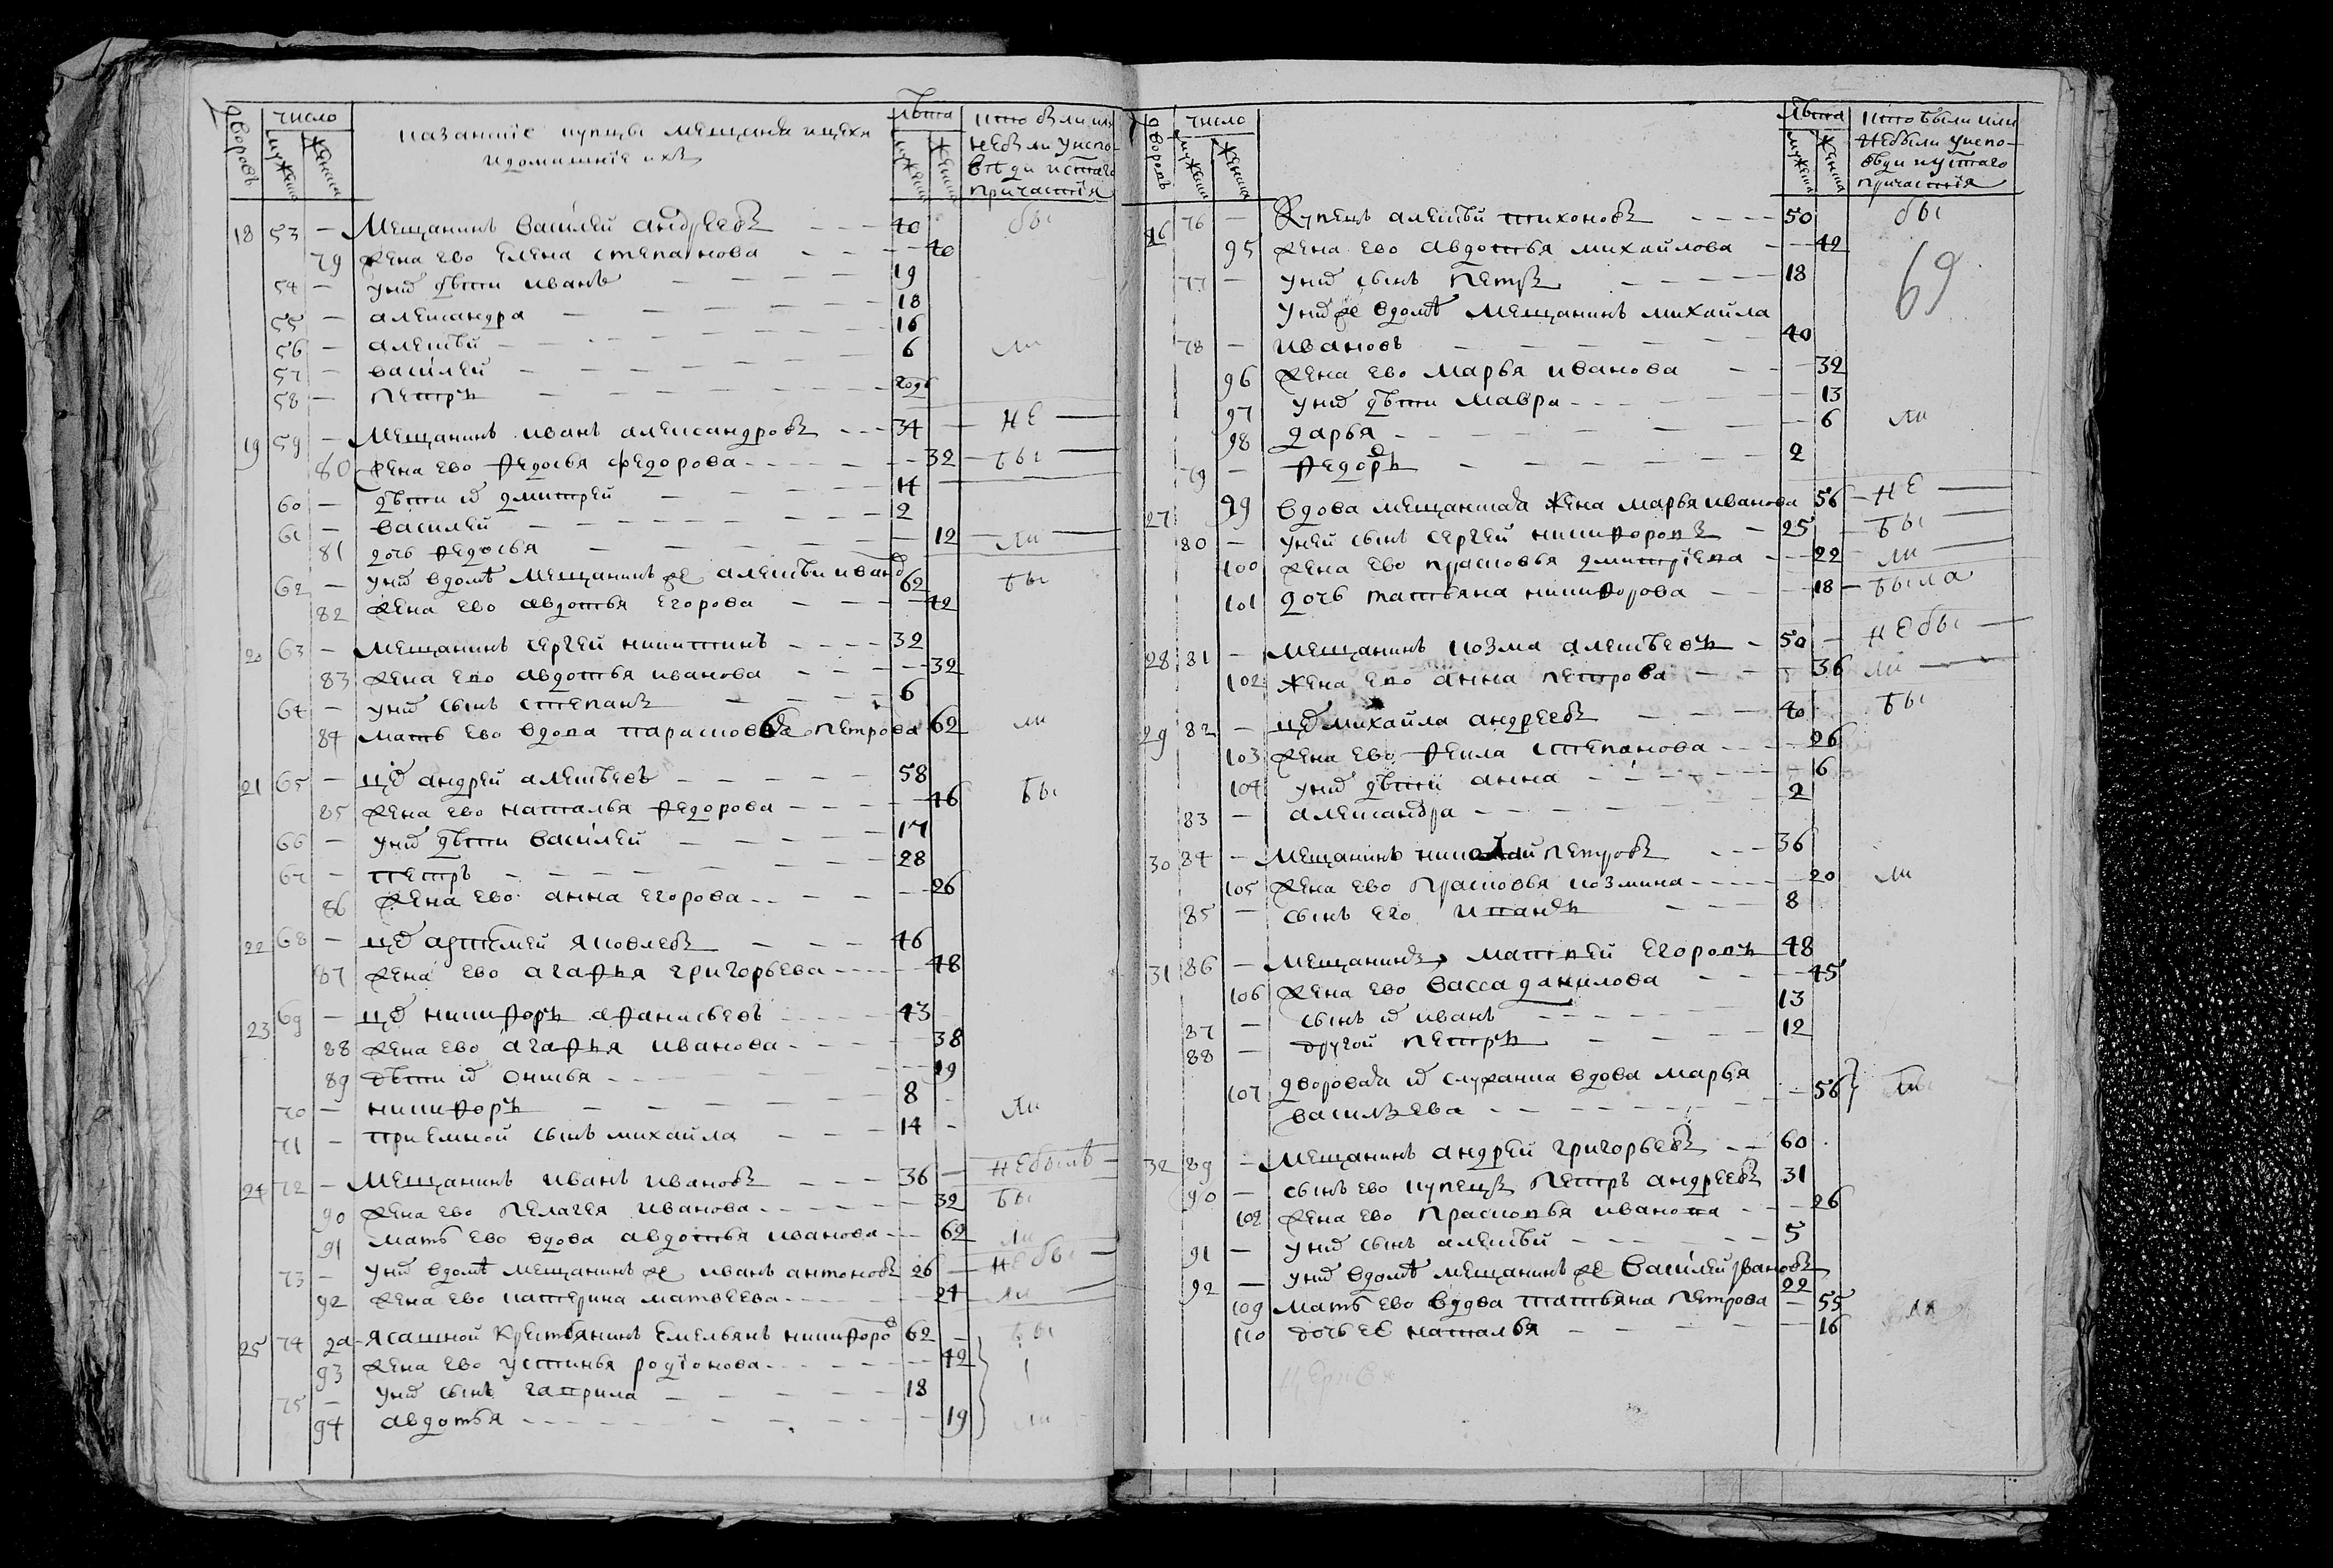 дворовъ число мужеска женска казанскiе купцы мещаня и цехи
и домашнiе ихъ лѣта мужеска женска кто были или
не были у испо-
вѣди и стаго
причастiя
18 53 — Мещанинъ василей андреевъ 40 бы
79 жена ево елена степанова 40
54 — у них дѣти иванъ 19
55 — александра 18
56 — алексѣй 16
57 — василей 6 ли
58 — петръ
19 59 — Мещанинъ иванъ александровъ 34 — не
80 жена ево федосья федорова 32 — бы
60 — дѣти их дмитрей 14
61 — василей 2
81 дочь федосья 12 — ли
62 — у них в домѣ мещанинъ же алексѣй иванов 62 бы
82 жена ево авдотья егорова 42
20 63 — мещанинъ сергей никитинъ 32
83 жена ево авдотья иванова 32
64 — у них сынъ степанъ 6
84 мать ево вдова парасковья петрова 62 ли
21 65 — цех андрей алексѣевъ 58
85 жена ево наталья федорова 46 бы
66 — у них дѣти василей 17
67 — петръ 28
86 жена ево анна егорова 26
22 68 — цех артемей яковлевъ 46
87 жена ево агафья григорьева 48
23 69 — цех никифоръ афанасьевъ 43
88 жена ево агафья иванова 38
89 дѣти их 19
70 — никифоръ 8
71 — приемной сынъ михайла 14 — ли
24 72 — Мещанинъ иванъ ивановъ 36 — не былъ
90 жена ево пелагея иванова 32 бы
91 мать ево вдова авдотья иванова 62 ли
73 — у них в домѣ мещанинъ же иванъ антоновъ 26 — не бы
92 жена ево катерина матвеева 24 — ли
25 74 ясашной крестьянинъ емельянъ никифоров 62 — бы
93 жена ево устинья родiонова 42
75 — у них сынъ гаврила 18
94 авдотья 19 ли
дворовъ число мужеска женска лѣта мужеска женска кто были или
не были у испо-
вѣди и стаго
причастiя
26 76 — Купецъ алексѣй тихоновъ 50 бы
95 жена ево авдотья михайлова 42
69
77 — у них сынъ петръ 18
у них же в домѣ мещанинъ михайла
78 — ивановъ 40
96 жена ево марья иванова 32
97 у них дѣти мавра 13
98 дарья 6 ли
79 — федоръ 2
27 99 вдова мещанская жена марья иванова 56 — не
80 — у ней сынъ сергей никифоровъ 25 — бы
100 жена ево прасковья дмитрiева 22 ли
101 дочь татьяна никифорова 18 — была
28 81 — мещанинъ козма алексѣевъ 50 — не бы
102 жена ево анна петрова 36 ли
29 82 — цех михайла андреевъ 40 бы
103 жена ево фекла степанова 26
104 у них дѣти анна 6
83 — александра 2
30 84 — мещанинъ николай петровъ 36
105 жена ево прасковья козмина 20 ли
85 — сынъ его 8
31 86 — мещанинъ матвей егоровъ 48
106 жена ево васса данилова 45
87 — сынъ их иванъ 13
88 — другой петръ 12
107 дворовая их служанка вдова марья
васильева 56
32 89 — мещанинъ андрей григорьевъ 60
90 — сынъ ево купецъ петръ андреевъ 31
108 жена ево прасковья иванова 26
91 — у них сынъ алексѣй 5
92 — у них в домѣ мещанинъ же василей ивановъ 22
109 мать ево вдова татьяна петрова — 55 ли
110 дочь ее наталья 16